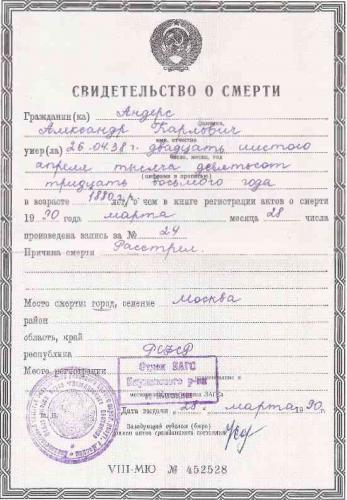 СВИДЕТЕЛЬСТВО О СМЕРТИ
Гражданин(ка) Андерс
фамилия,
Александр Карлович
имя, отчество
умер(ла) 26.04.38 г. двадцать шестого
число, месяц, год
апреля тысяча девятьсот
(цифрами и прописью)
тридцать восьмого года
в возрасте 1880 г/р лет, о чем в книге регистрации актов о смерти
19 90 года марта месяца 28 числа
произведена запись за № 24
Причина смерти Расстрел.
Место смерти: город, селение Москва
район
область, край
республика РСФСР
Место регистрации
Отдел ЗАГС
р-на
Дата выдачи „28" марта 1990 г.
Заведующий отделом (бюро)
записи актов гражданского состояния
М. П.
VIII-МЮ № 452528